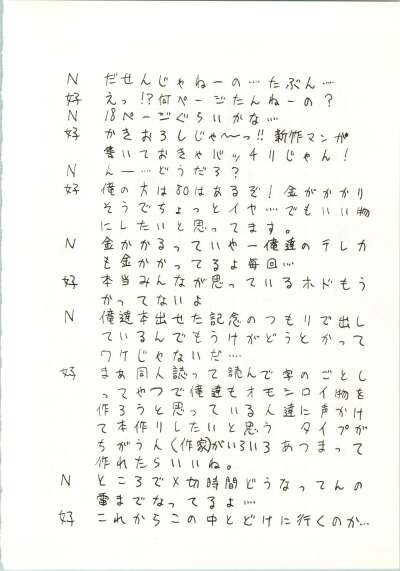 N だせんじゃねーの…たぶん…
好 えっ!?何ページたんねーの?
N 18ページぐらいかな…
好 かきおろしじゃ〜っ!!新作マンガ
書いておきゃバッチリじゃん!
N んー…どうだろ?
好 俺の方は80はあるぞ!金がかかり
そうでちょっとイヤ…でもいい物
にしたいと思ってます。
N 金かかるっていや一俺達のテレカ
も金かかってるよ毎回…
好 本当みんなが思っているホドもう
かってないよ
N 俺達本出せた記念のつもりで出し
ているんでもうけがどうとかって
ワケじゃないだ…
好 まあ同人誌って読んで字のごとし
ってやつで俺達もオモシロイ物を
作ろうと思っている人達に声かけ
て本作りしたいと思う タイプが
ちがうん(作家)がいろいろあつまって
作れたらいいね。
N ところで〆切時間どうなってんの
雷までなってるよ…
好 これからこの中とどけに行くのか…